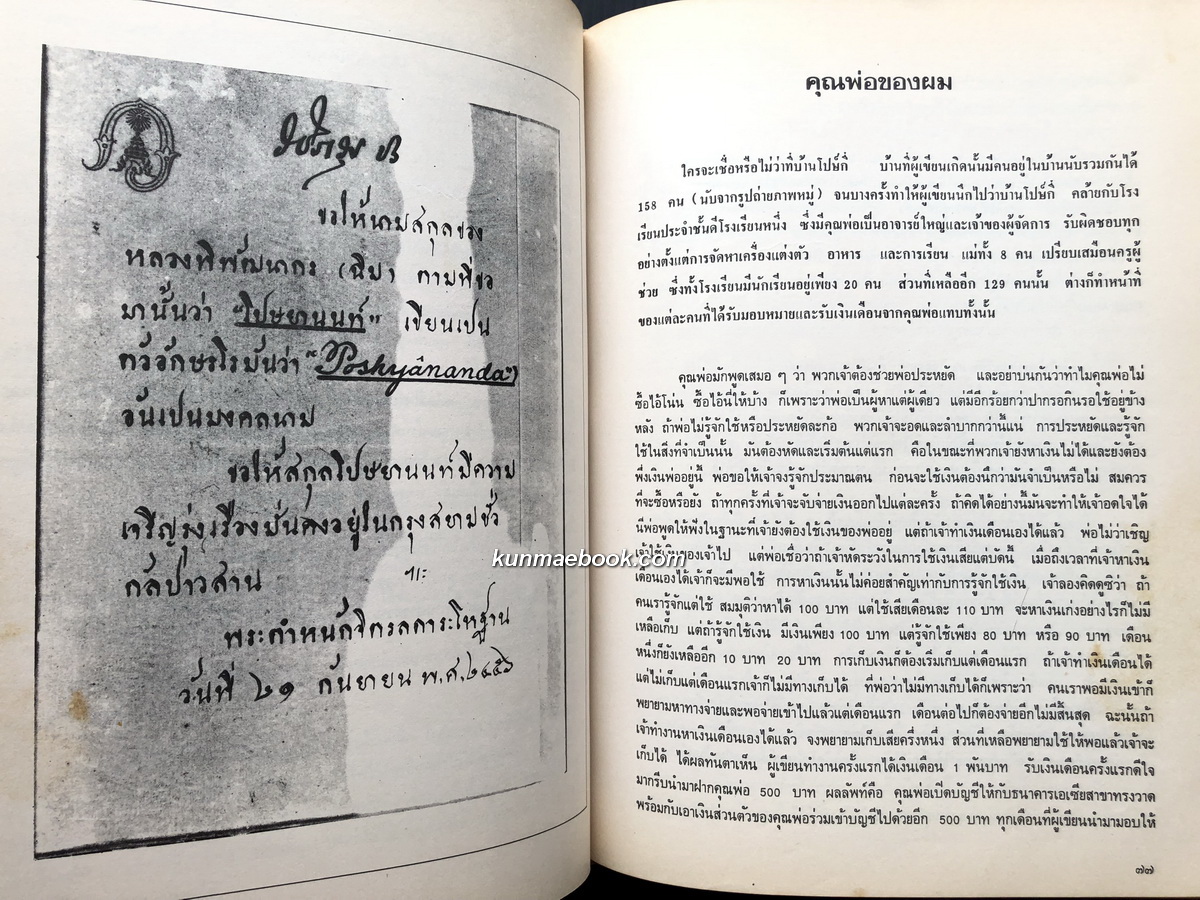 ขอให้นามสกุลของ
หลวงพิพัฒนากร (ฉิม) ตามที่ขอ
มานั้นว่า "โปษยานนท์" เขียนเป็น
ตัวอักษรโรมันว่า "Poshyânanda"
อันเป็นมงคลนาม
ขอให้สกุลโปษยานนท์มีความ
เจริญรุ่งเรืองมั่นคงอยู่ในกรุงสยามชั่ว
กัลปาวสาน
พระตำหนักจิตรลดารโหฐาน
วันที่ ๒๑ กันยายน พ.ศ. ๒๔๕๖
kunmaebook.com
คุณพ่อของผม
ใครจะเชื่อหรือไม่ว่าที่บ้านโปษ์กี่ บ้านที่ผู้เขียนเกิดนั้นมีคนอยู่ในบ้านนับรวมกันได้
158 คน (นับจากรูปถ่ายภาพหมู่) จนบางครั้งทำให้ผู้เขียนนึกไปว่าบ้านโปษ์กี่ คล้ายกับโรง
เรียนประจำชั้นดีโรงเรียนหนึ่ง ซึ่งมีคุณพ่อเป็นอาจารย์ใหญ่และเจ้าของผู้จัดการ รับผิดชอบทุก
อย่างตั้งแต่การจัดหาเครื่องแต่งตัว อาหาร และการเรียน แม่ทั้ง 8 คน เปรียบเสมือนครูผู้
ช่วย ซึ่งทั้งโรงเรียนมีนักเรียนอยู่เพียง 20 คน ส่วนที่เหลืออีก 129 คนนั้น ต่างก็ทำหน้าที่
ของแต่ละคนที่ได้รับมอบหมายและรับเงินเดือนจากคุณพ่อแทบทั้งนั้น
คุณพ่อมักพูดเสมอ ๆ ว่า พวกเจ้าต้องช่วยพ่อประหยัด และอย่าบ่นกันว่าทำไมคุณพ่อไม่
ซื้อไอ้โน่น ซื้อไอ้นี่ให้บ้าง ก็เพราะว่าพ่อเป็นผู้หาแต่ผู้เดียว แต่มีอีกร้อยกว่าปากรอกินรอใช้อยู่ข้าง
หลัง ถ้าพ่อไม่รู้จักใช้หรือประหยัดละก้อ พวกเจ้าจะอดและลำบากกว่านี้แน่ การประหยัดและรู้จัก
ใช้ในสิ่งที่จำเป็นนั้น มันต้องหัดและเริ่มต้นแต่แรก คือในขณะที่พวกเจ้ายังหาเงินไม่ได้และยังต้อง
พึ่งเงินพ่ออยู่นี้ พ่อขอให้เจ้าจงรู้จักประมาณตน ก่อนจะใช้เงินต้องนึกว่ามันจำเป็นหรือไม่ สมควร
ที่จะซื้อหรือยัง ถ้าทุกครั้งที่เจ้าจะจับจ่ายเงินออกไปแต่ละครั้ง ถ้าคิดได้อย่างนี้มันจะทำให้เจ้าอดใจได้
นี่พ่อพูดให้ฟังในฐานะที่เจ้ายังต้องใช้เงินของพ่ออยู่ แต่ถ้าเจ้าทำเงินเดือนเองได้แล้ว พ่อไม่ว่าเชิญ
เจ้าใช้เงินของเจ้าไป แต่พ่อเชื่อว่าถ้าเจ้าหัดระวังในการใช้เงินเสียแต่บัดนี้ เมื่อถึงเวลาที่เจ้าหาเงิน
เดือนเองได้เจ้าก็จะมีพอใช้ การหาเงินนั้นไม่ค่อยสำคัญเท่ากับการรู้จักใช้เงิน เจ้าลองคิดดูซิว่า ถ้า
คนเรารู้จักแต่ใช้ สมมุติว่าหาได้ 100 บาท แต่ใช้เสียเดือนละ 110 บาท จะหาเงินเก่งอย่างไรก็ไม่มี
เหลือเก็บ แต่ถ้ารู้จักใช้เงิน มีเงินเพียง 100 บาท แต่รู้จักใช้เพียง 80 บาท หรือ 90 บาท เดือน
หนึ่งก็ยังเหลืออีก 10 บาท 20 บาท การเก็บเงินก็ต้องเริ่มเก็บแต่เดือนแรก ถ้าเจ้าทำเงินเดือนได้
แต่ไม่เก็บแต่เดือนแรกเจ้าก็ไม่มีทางเก็บได้ ที่พ่อว่าไม่มีทางเก็บได้ก็เพราะว่า คนเราพอมีเงินเข้าก็
พยายามหาทางจ่ายและพอจ่ายเข้าไปแล้วแต่เดือนแรก เดือนต่อไปก็ต้องจ่ายอีกไม่มีสิ้นสุด ฉะนั้นถ้า
เจ้าทำงานหาเงินเดือนเองได้แล้ว จงพยายามเก็บเสียครึ่งหนึ่ง ส่วนที่เหลือพยายามใช้ให้พอแล้วเจ้าจะ
เก็บได้ ได้ผลทันตาเห็น ผู้เขียนทำงานครั้งแรกได้เงินเดือน 1 พันบาท รับเงินเดือนครั้งแรกดีใจ
มากรีบนำมาฝากคุณพ่อ 500 บาท ผลลัพท์คือ คุณพ่อเปิดบัญชีให้กับธนาคารเอเซียสาขาทรงวาด
พร้อมกับเอาเงินส่วนตัวของคุณพ่อร่วมเข้าบัญชีไปด้วยอีก 500 บาท ทุกเดือนที่ผู้เขียนนำมามอบให้
๗๗